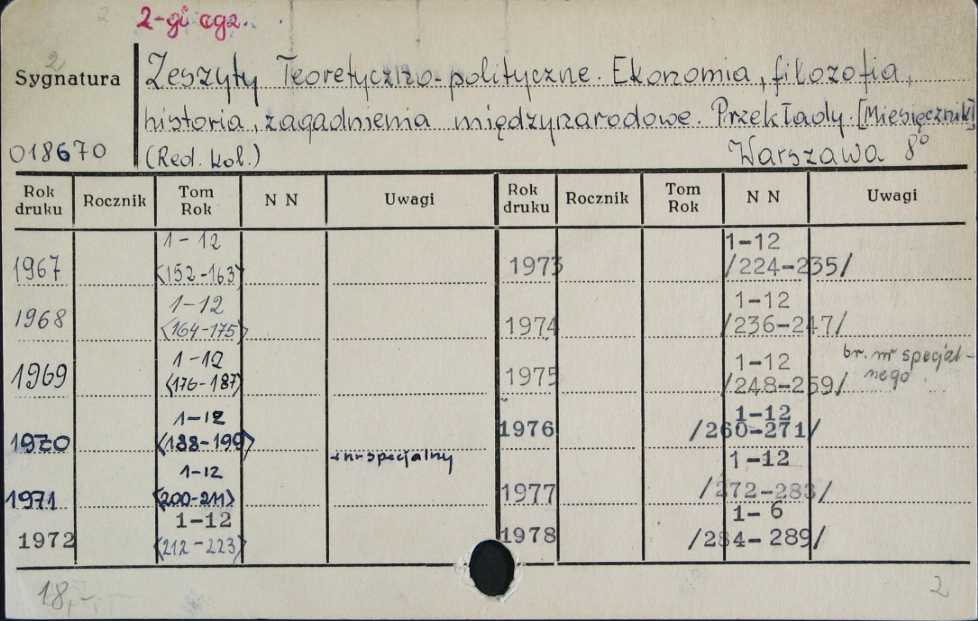 2-gi egz.
2
Sygnatura
Zeszyty Teoretyczno-polityczne. Ekonomia, filozofia,
historia, zagadnienia międzynarodowe. Przekłady. [Miesięcznik]
018670
(Red. kol.) Warszawa 8°
Rok druku Rocznik Tom Rok N N Uwagi Rok druku Rocznik Tom Rok N N Uwagi
1967 1-12 <152-163> 1973 1-12 /224-235/
1968 1-12 <164-175> 1974 1-12 /236-247/
1969 1-12 <176-187> 1975 1-12 /248-259/ br. nr specjal-nego.
1970 1-12 <188-199> 1976 1-12 /260-271/
+nr specjalny
1971 1-12 <200-211> 1977 1-12 /272-283/
1972 1-12 <212-223> 1978 1-6 /284-289/
18,-
2